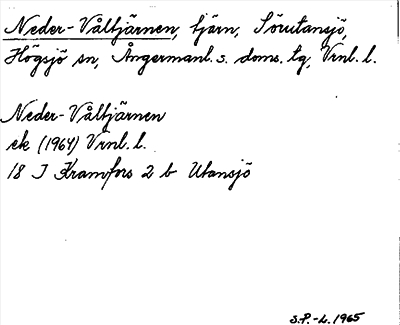 Neder-Våltjärnen, tjärn, Sörutansjö,
Högsjö sn, Ångermanl. s. doms. tg, Vrnl. l.
Neder-Våltjärnen
ek (1964) Vrnl. l.
18 I Kramfors 2 b Utansjö
S.P.-L. 1965